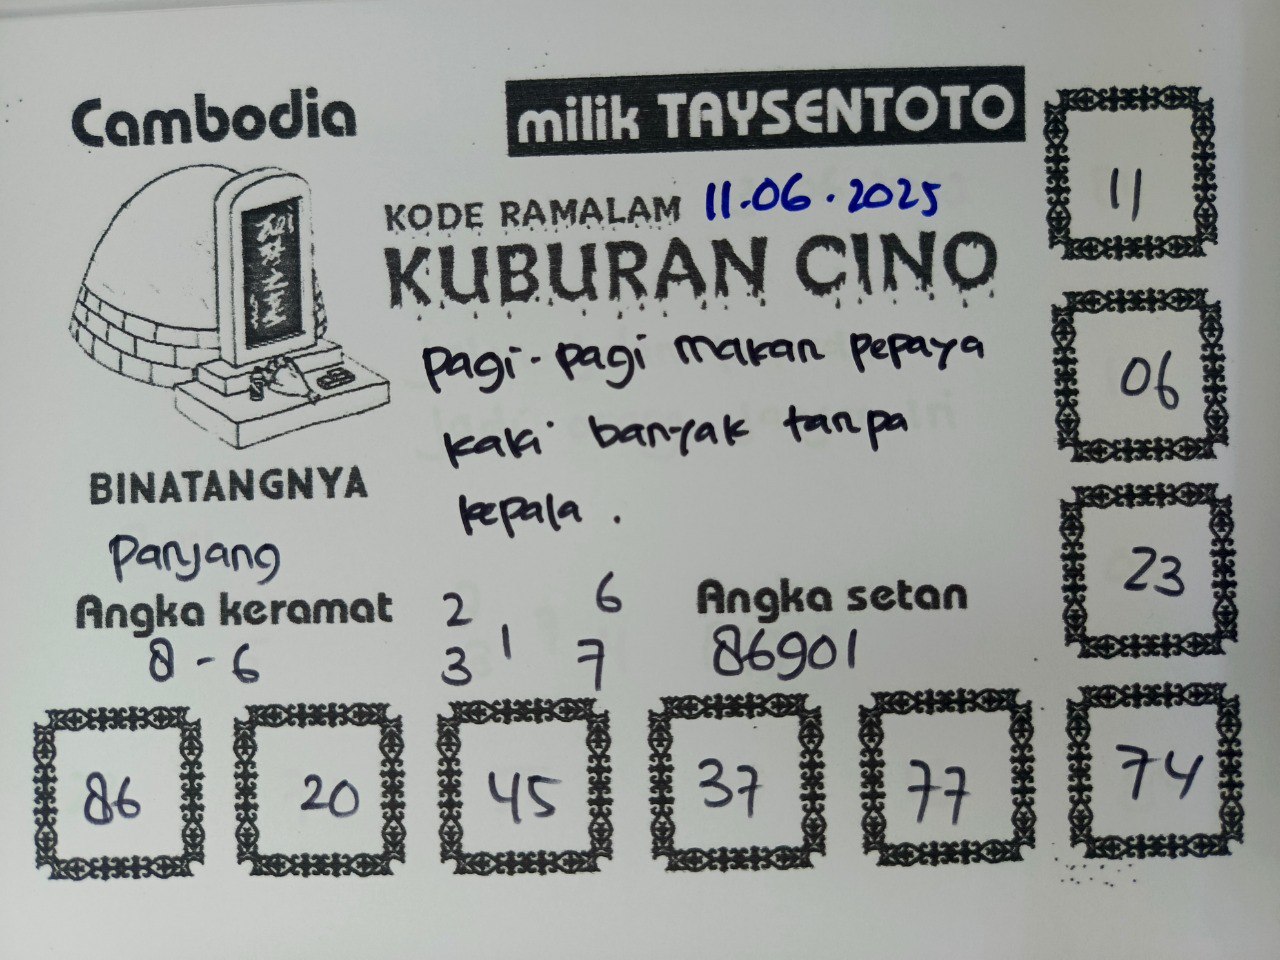 Cambodia
milik TAYSENTOTO
KODE RAMALAM 11.06.2025
KUBURAN CINO
Pagi-pagi makan pepaya
kaki banyak tanpa
kepala.
BINATANGNYA
Panjang
Angka keramat
8-6
2 6
3 1 7
Angka setan
86901
11
06
23
86 20 45 37 77 74